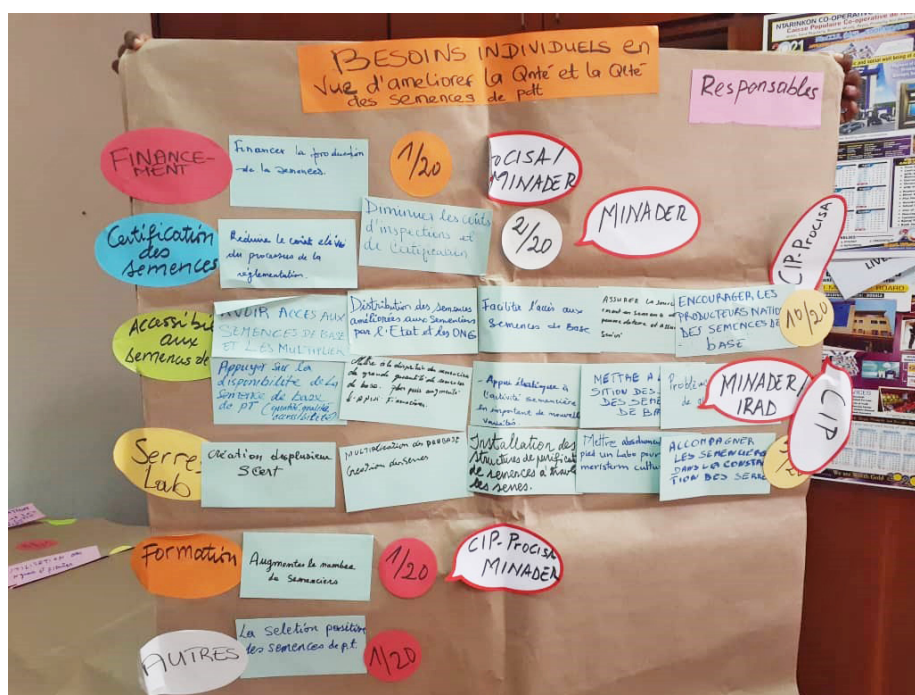 BESOINS INDIVIDUELS en
vue d'ameliorer la Qnté et la Qlté
des semences de pdt
Responsables
FINANCE-
MENT
Financer la production
de la semences.
1/20
CISA/
MINADER
Certification
des
semences
Réduire le coût élevé
du processus de la
réglementation.
Diminuer les coûts
d'inspections et
de Certification
2/20
MINADER
CIP-Procisa
Accessibi
aux
semences de
AVOIR ACCES AUX
SEMENCES DE BAZE
ET LES MULTIPLIER
Distribution des semences
améliorées aux semenciers
par l'Etat et les ONG
Facilité l'accès aux
semences de Base
ASSURER la
ENCOURAGER LES
PRODUCTEURS NATIO
DES SEMENCES DE
BASE
10/20
Appuyer sur la
disponibilité de la
semence de base
de PT (quantité, qualité,
variabilité)
Mettre à la disposition des semenciers
de grande quantité de semences
de base.
financières.
- Appui étatique à
l'activité semencière
en important de nouvelles
variétés
METTRE A
SITION DES
DES SEME
DE BA
Problème
MINADER/
IRAD
CIP
Serre
Lab
Création de plusieur
Multiplication du
Création des Serres
Installation des
structures de purifica
de semences à trave
les serres.
Mettre absolument
pied un Labo pour
meristem cultu
ACCOMPAGNER
LES SEMENCIERS
DANS LA CONSTRUC
TION DES SERRE
Formation
Augmenter le nombre
de semenciers
1/20
CIP-Procisa
MINADER
AUTRES
La seletion positive
des semences de pt.
1/20
NTARINKON CO-OPERATIVE
Caisse Populaire Co-operative de
2021
BOARD